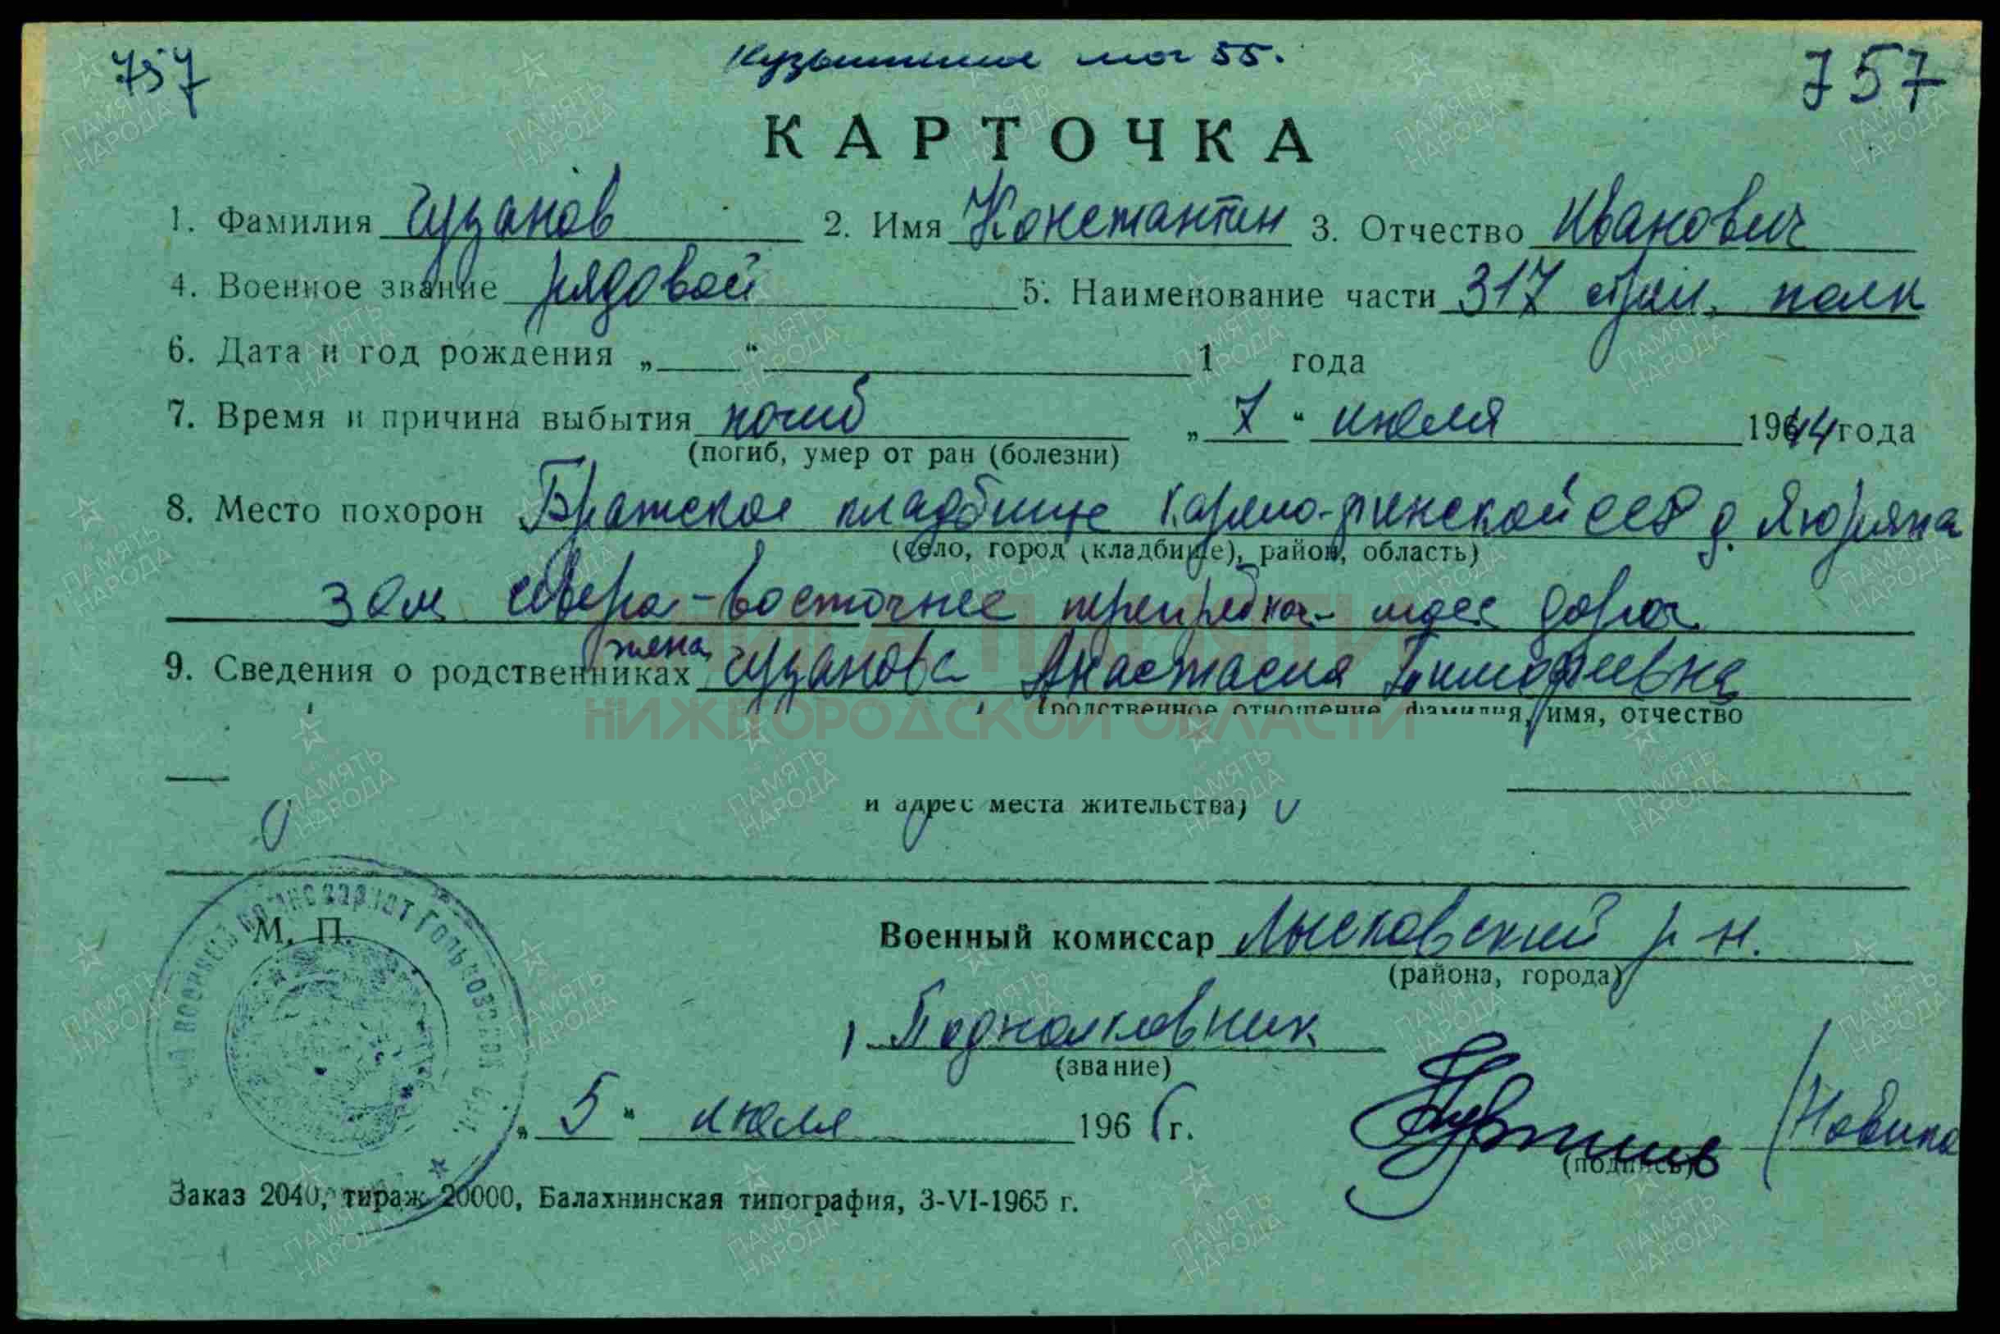 757 мог 55. 757
КАРТОЧКА
1. Фамилия Чузанов 2. Имя Константин 3. Отчество Иванович
4. Военное звание рядовой 5. Наименование части 317 стрел. полк
6. Дата и год рождения „ “ 1 года
7. Время и причина выбытия погиб „7“ июля 1944 года
(погиб, умер от ран (болезни)
8. Место похорон Братское кладбище Карело-финской ССР д.
(село, город (кладбище), район, область)
северо-восточнее дорог
жена
9. Сведения о родственниках Чузанова Анастасия Тимофеевна
(родственное отношение, фамилия, имя, отчество
КНИГА ПАМЯТИ
НИЖЕГОРОДСКОЙ ОБЛАСТИ
и адрес места жительства)
М. П.
Военный комиссар Лысковский р-н.
(района, города)
Подполковник
(звание)
„5“ июля 196 г.
(подпись)
Заказ 2040, тираж 20000, Балахнинская типография, 3-VI-1965 г.
ПАМЯТЬ НАРОДА